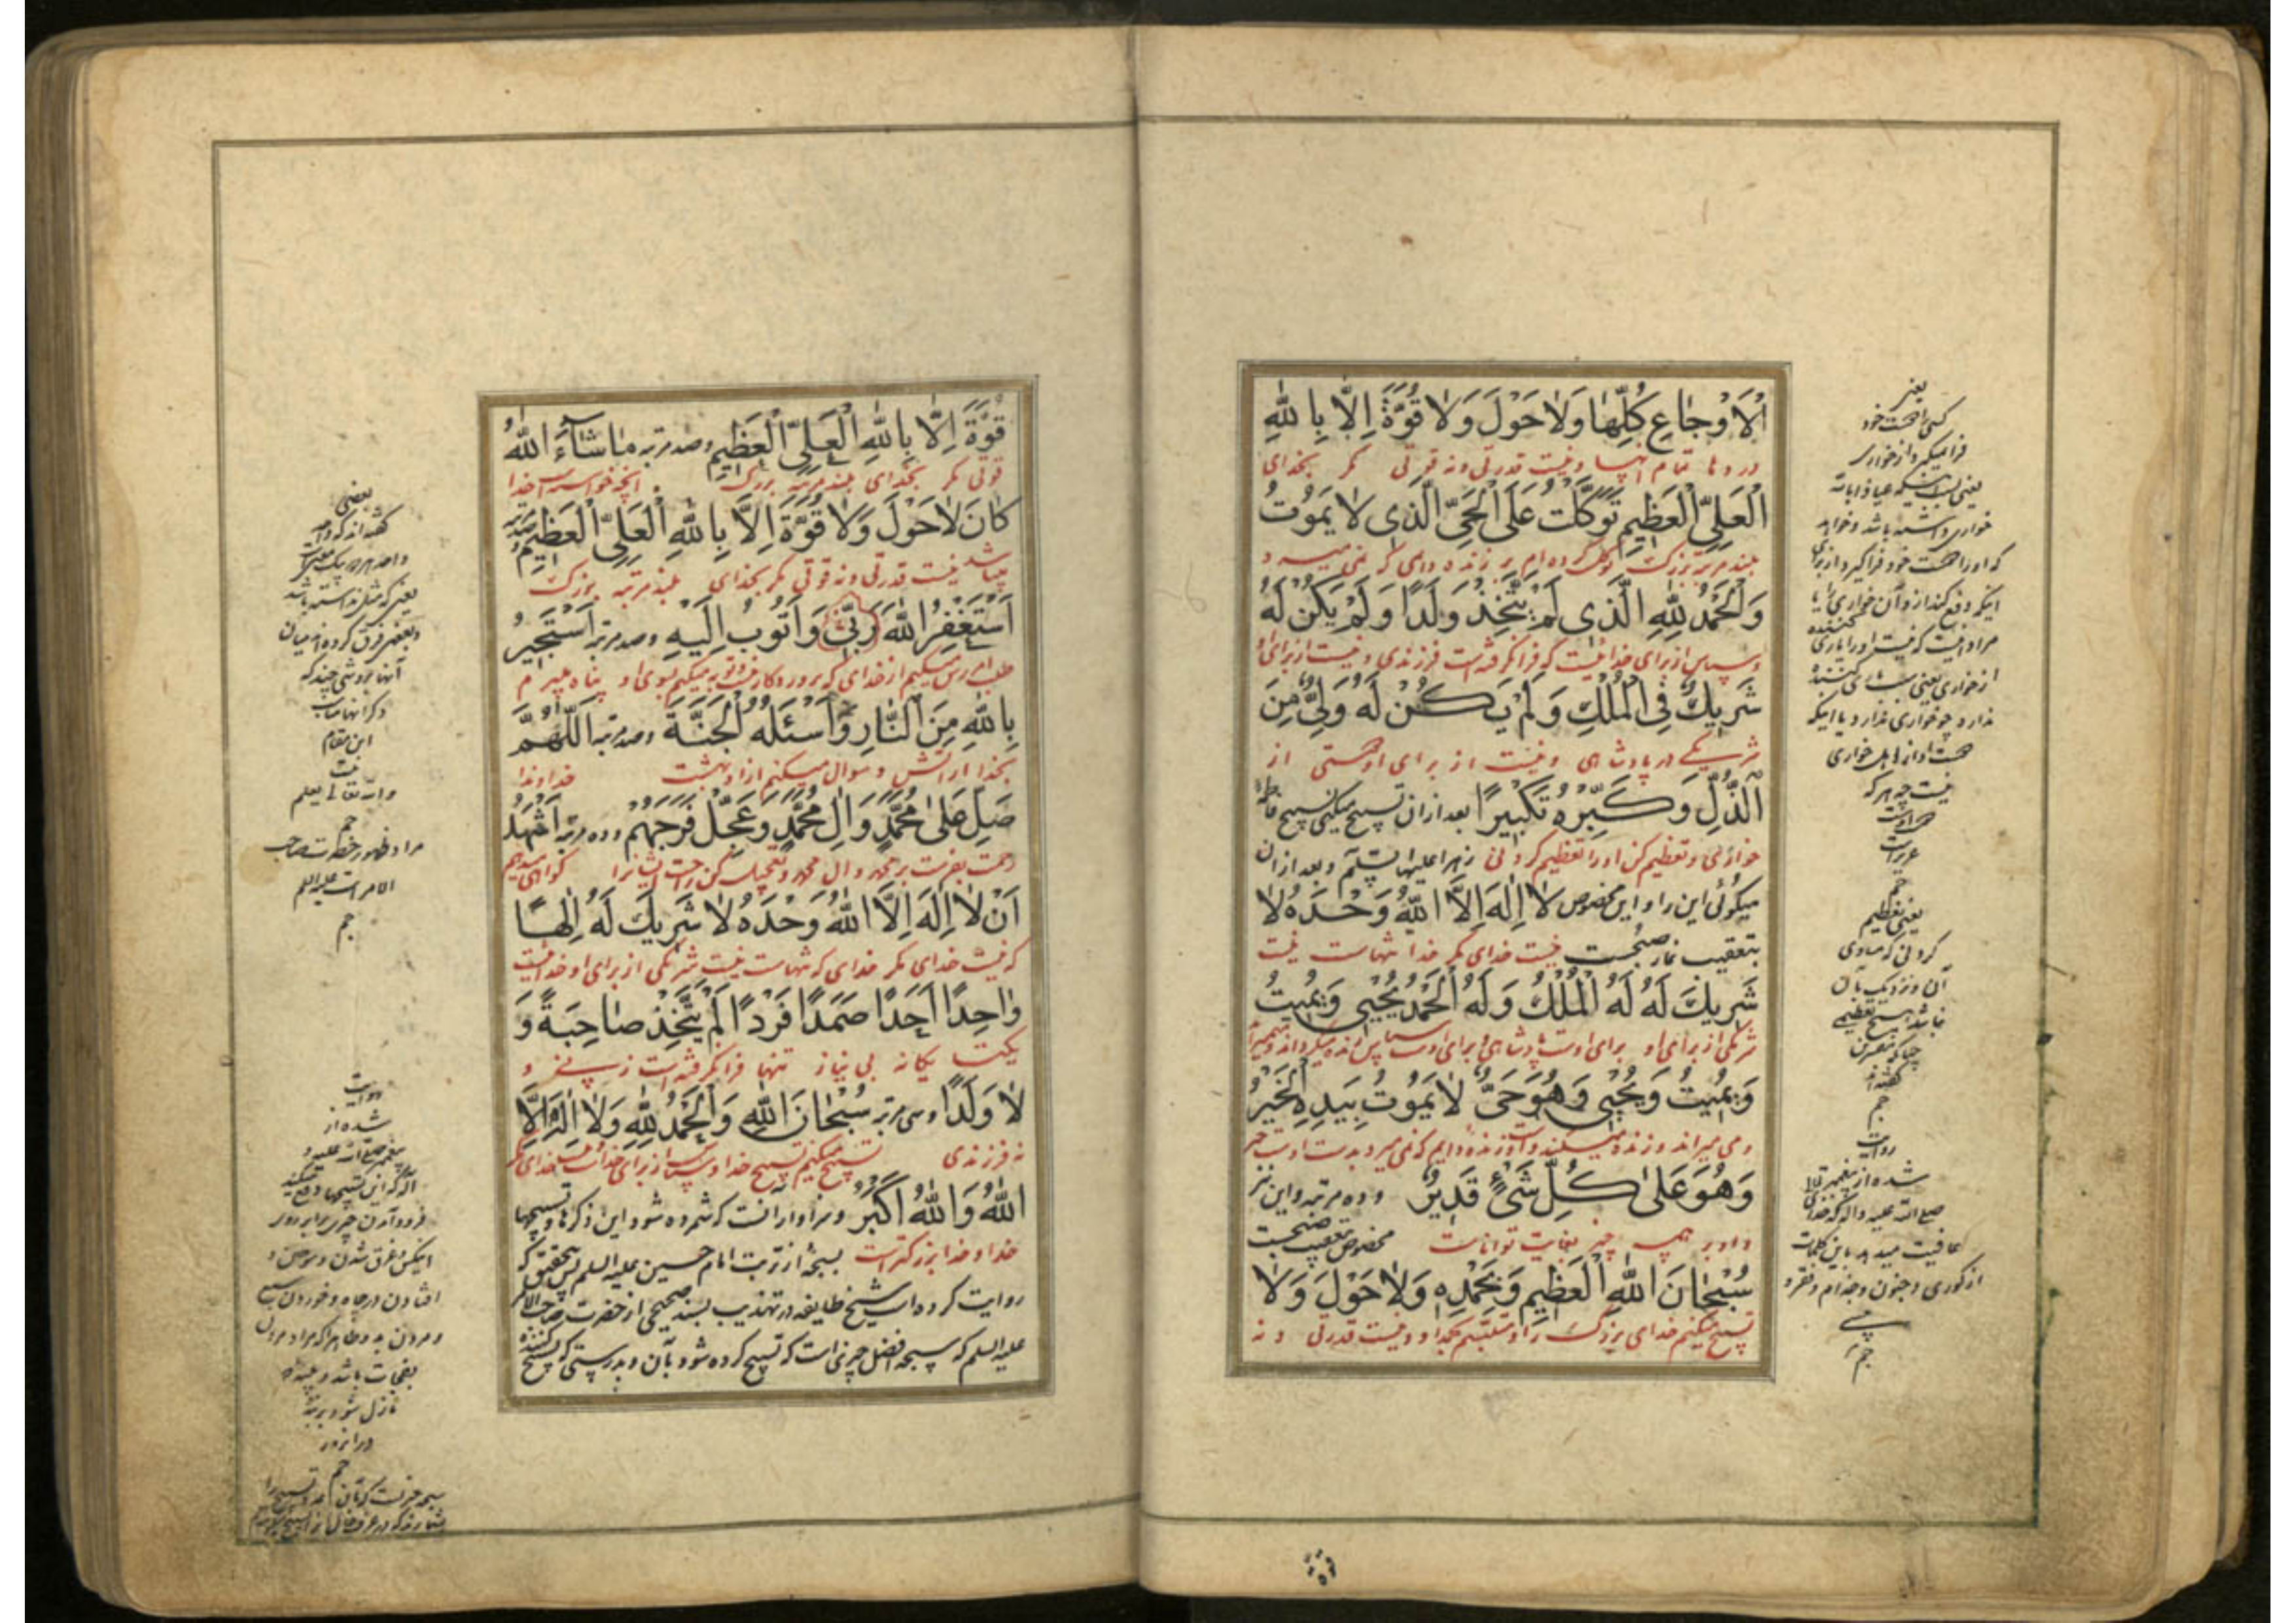 اَلْاَوْجٰاعِ كُلِّهٰا وَلٰا حَوْلَ وَلٰا قُوَّةَ اِلّٰا بِاللّٰهِ
دردها تمام آنها و نیست قدرتی و نه قوتی مگر بخدای
الْعَلِيِّ الْعَظِيمِ تَوَكَّلْتُ عَلَى الْحَيِّ الَّذِي لٰا يَمُوتُ
بلند مرتبه بزرگ توکل کرده‌ام بر زنده دایمی که نمی‌میرد و
وَالْحَمْدُ لِلّٰهِ الَّذِي لَمْ يَتَّخِذْ وَلَدًا وَلَمْ يَكُنْ لَهُ
و سپاس از برای خدائیست که فرا نگرفته است فرزندی و نیست از برای او
شَرِيكٌ فِي الْمُلْكِ وَلَمْ يَكُنْ لَهُ وَلِيٌّ مِنَ
شریکی در پادشاهی و نیست از برای او از
الذُّلِّ وَكَبِّرْهُ تَكْبِيرًا بعد از ان تسبیح میکنی تسبیح فاطمه
خواری و تعظیم کن او را تعظیم کردنی زهرا علیها السّلم و بعد از ان
میگوئی این را و این مخصوص لٰا اِلٰهَ اِلَّا اللّٰهُ وَحْدَهُ لٰا
بتعقیب نماز صبحست نیست خدای مگر خدا تنهاست نیست
شَرِيكَ لَهُ لَهُ الْمُلْكُ وَلَهُ الْحَمْدُ يُحْيِي وَيُمِيتُ
شریکی از برای او برای اوست پادشاهی و برای اوست سپاس زنده میگرداند و میمیراند
وَيُمِيتُ وَيُحْيِي وَهُوَ حَيٌّ لٰا يَمُوتُ بِيَدِهِ الْخَيْرُ
و می میراند و زنده میکند و اوست زنده دایم که نمی میرد بدست اوست خیر
وَهُوَ عَلٰى كُلِّ شَيْءٍ قَدِيرٌ و ده مرتبه و این نیز
و او بر همه چیز بغایت تواناست مخصوص تعقیب صبحست
سُبْحٰانَ اللّٰهِ الْعَظِيمِ وَبِحَمْدِهِ وَلٰا حَوْلَ وَلٰا
تسبیح میکنم خدای بزرگ را و بحمد او و نیست قدرتی و نه
یعنی
کسی را بجهت خود
فرا میگیرد از خواری
یعنی
خواری داشته باشد و خواهد
که او را بجهت خود فرا گیرد از برای
اینکه دفع کند از و آن خواری را یا
مراد اینست که نیست او را یاری کننده
از خواری یعنی
ندارد چو خواری ندارد یا اینکه
خواری
نیست چه هر که
عزیزست
یعنی تعظیم
کردنی که مساوی
آن و نزدیک بآن
نباشد هیچ تعظیمی
گفته‌اند
روایت
شده از پیغمبر
صلی الله علیه و اله که خدای تعالی
عافیت میدهد باین کلمات
از کوری و جنون و جذام و فقر و
قُوَّةَ اِلّٰا بِاللّٰهِ الْعَلِيِّ الْعَظِيمِ و صد مرتبه مٰا شٰاءَ اللّٰهُ
قوتی مگر بخدای بلند مرتبه بزرگ آنچه خواسته است خدا
كٰانَ لٰا حَوْلَ وَلٰا قُوَّةَ اِلَّا بِاللّٰهِ الْعَلِيِّ الْعَظِيمِ و صد مرتبه
میباشد نیست قدرتی و نه قوتی مگر بخدای بلند مرتبه بزرگ
اَسْتَغْفِرُ اللّٰهَ رَبِّي وَاَتُوبُ اِلَيْهِ و صد مرتبه اَسْتَجِيرُ
طلب آمرزش میکنم از خدای که پروردگار منست و توبه میکنم بسوی او پناه میبرم
بِاللّٰهِ مِنَ النّٰارِ وَاَسْئَلُهُ الْجَنَّةَ و صد مرتبه اَللّٰهُمَّ
بخدا از آتش و سوال میکنم از او بهشت خداوندا
صَلِّ عَلٰى مُحَمَّدٍ وَاٰلِ مُحَمَّدٍ وَعَجِّلْ فَرَجَهُمْ و ده مرتبه اَشْهَدُ
رحمت بفرست بر محمد و ال محمد و تعجیل کن راحت ایشانرا گواهی میدهم
اَنْ لٰا اِلٰهَ اِلَّا اللّٰهُ وَحْدَهُ لٰا شَرِيكَ لَهُ اِلٰهًا
که نیست خدای مگر خدای که تنهاست نیست شریکی از برای او خدائیست
وٰاحِدًا اَحَدًا صَمَدًا فَرْدًا لَمْ يَتَّخِذْ صٰاحِبَةً وَ
یکتا یگانه بی نیاز تنها فرا نگرفته است زنی و
لٰا وَلَدًا و سی مرتبه سُبْحٰانَ اللّٰهِ وَالْحَمْدُ لِلّٰهِ وَلٰا اِلٰهَ اِلَّا
نه فرزندی تسبیح میکنم تسبیح خدا و سپاس از برای خداست و نیست خدای مگر
اللّٰهُ وَاللّٰهُ اَكْبَرُ و سزاوار آنست که شمرده شود این ذکرها و تسبیحها
خدا و خدا بزرگترست بسبحهٔ از تربت امام حسین علیه السلم پس بتحقیق که
روایت کرده است شیخ طایفه در تهذیب بسند صحیحی از حضرت صاحب الامر
علیه السلم که سبحه افضل چیزی است که تسبیح کرده شود بآن و بدرستی که تسبیح کننده
بعضی
گفته‌اند که واحد
و احد هر دو بیک معنیست
یعنی که مثل نداشته باشد
و بعضی فرق کرده‌اند میان
آنها بروشی چند که
ذکر آنها مناسب
این مقام
نیست
و الله تعالی یعلم
مراد ظهور حضرت صاحب
الامر است علیه السلم
روایت
شده از
پیغمبر صلی الله علیه و
آله که این تسبیحها دفع میکند
فرود آمدن چیزی برابر روی
اینکس و غرق شدن و سوختن و
افتادن در چاه و خوردن سبع
و مردن بد و ظاهرا که مراد مردن
بفجات باشد و بلیه که
نازل شود بر بنده
در آن روز